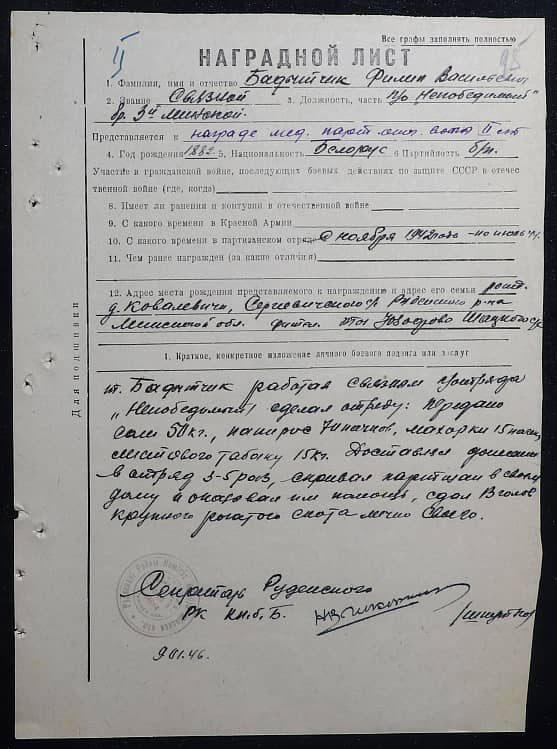 II
95
Все графы заполнять полностью
НАГРАДНОЙ ЛИСТ
1. Фамилия, имя и отчество Бадытчик Филип
2. Звание Связной 3. Должность, часть п/о Непобедимый"
бр. 3й Минской.
Представляется к награде мед. парт. отеч. войны II ст
4. Год рождения 1882 5. Национальность Белорус 6 Партийность б/п.
Участие в гражданской войне, последующих боевых действиях по защите СССР в отечес
твенной войне (где, когда)
8. Имеет ли ранения и контузии в отечественной войне
9. С какого времени в Красной Армии
10. С какого времени в партизанском отряде С ноября 1942 года - по июль 44.
11. Чем ранее награжден (за какие отличия)
12. Адрес места рождения представляемого к награждению и адрес его семьи
д. Ковалевичи, Руденского р-на
Минской обл.
Для подшивки
1. Краткое, конкретное изложение личного боевого подвига или заслуг
т. Бадытчик работая связным отряда
"Непобедимый" сделал отряду: передано
соли 50 кг., папирос 7 пачков, махорки 15
листового табаку 15 кг. Доставлял
в отряд 3-5 раз, скривал партизан в своем
дому и оказовал им помощь, сдал голов
крупного рогатого скота лично своего.
Секретарь Руденского
РК КП(б)Б.
9.01.46.